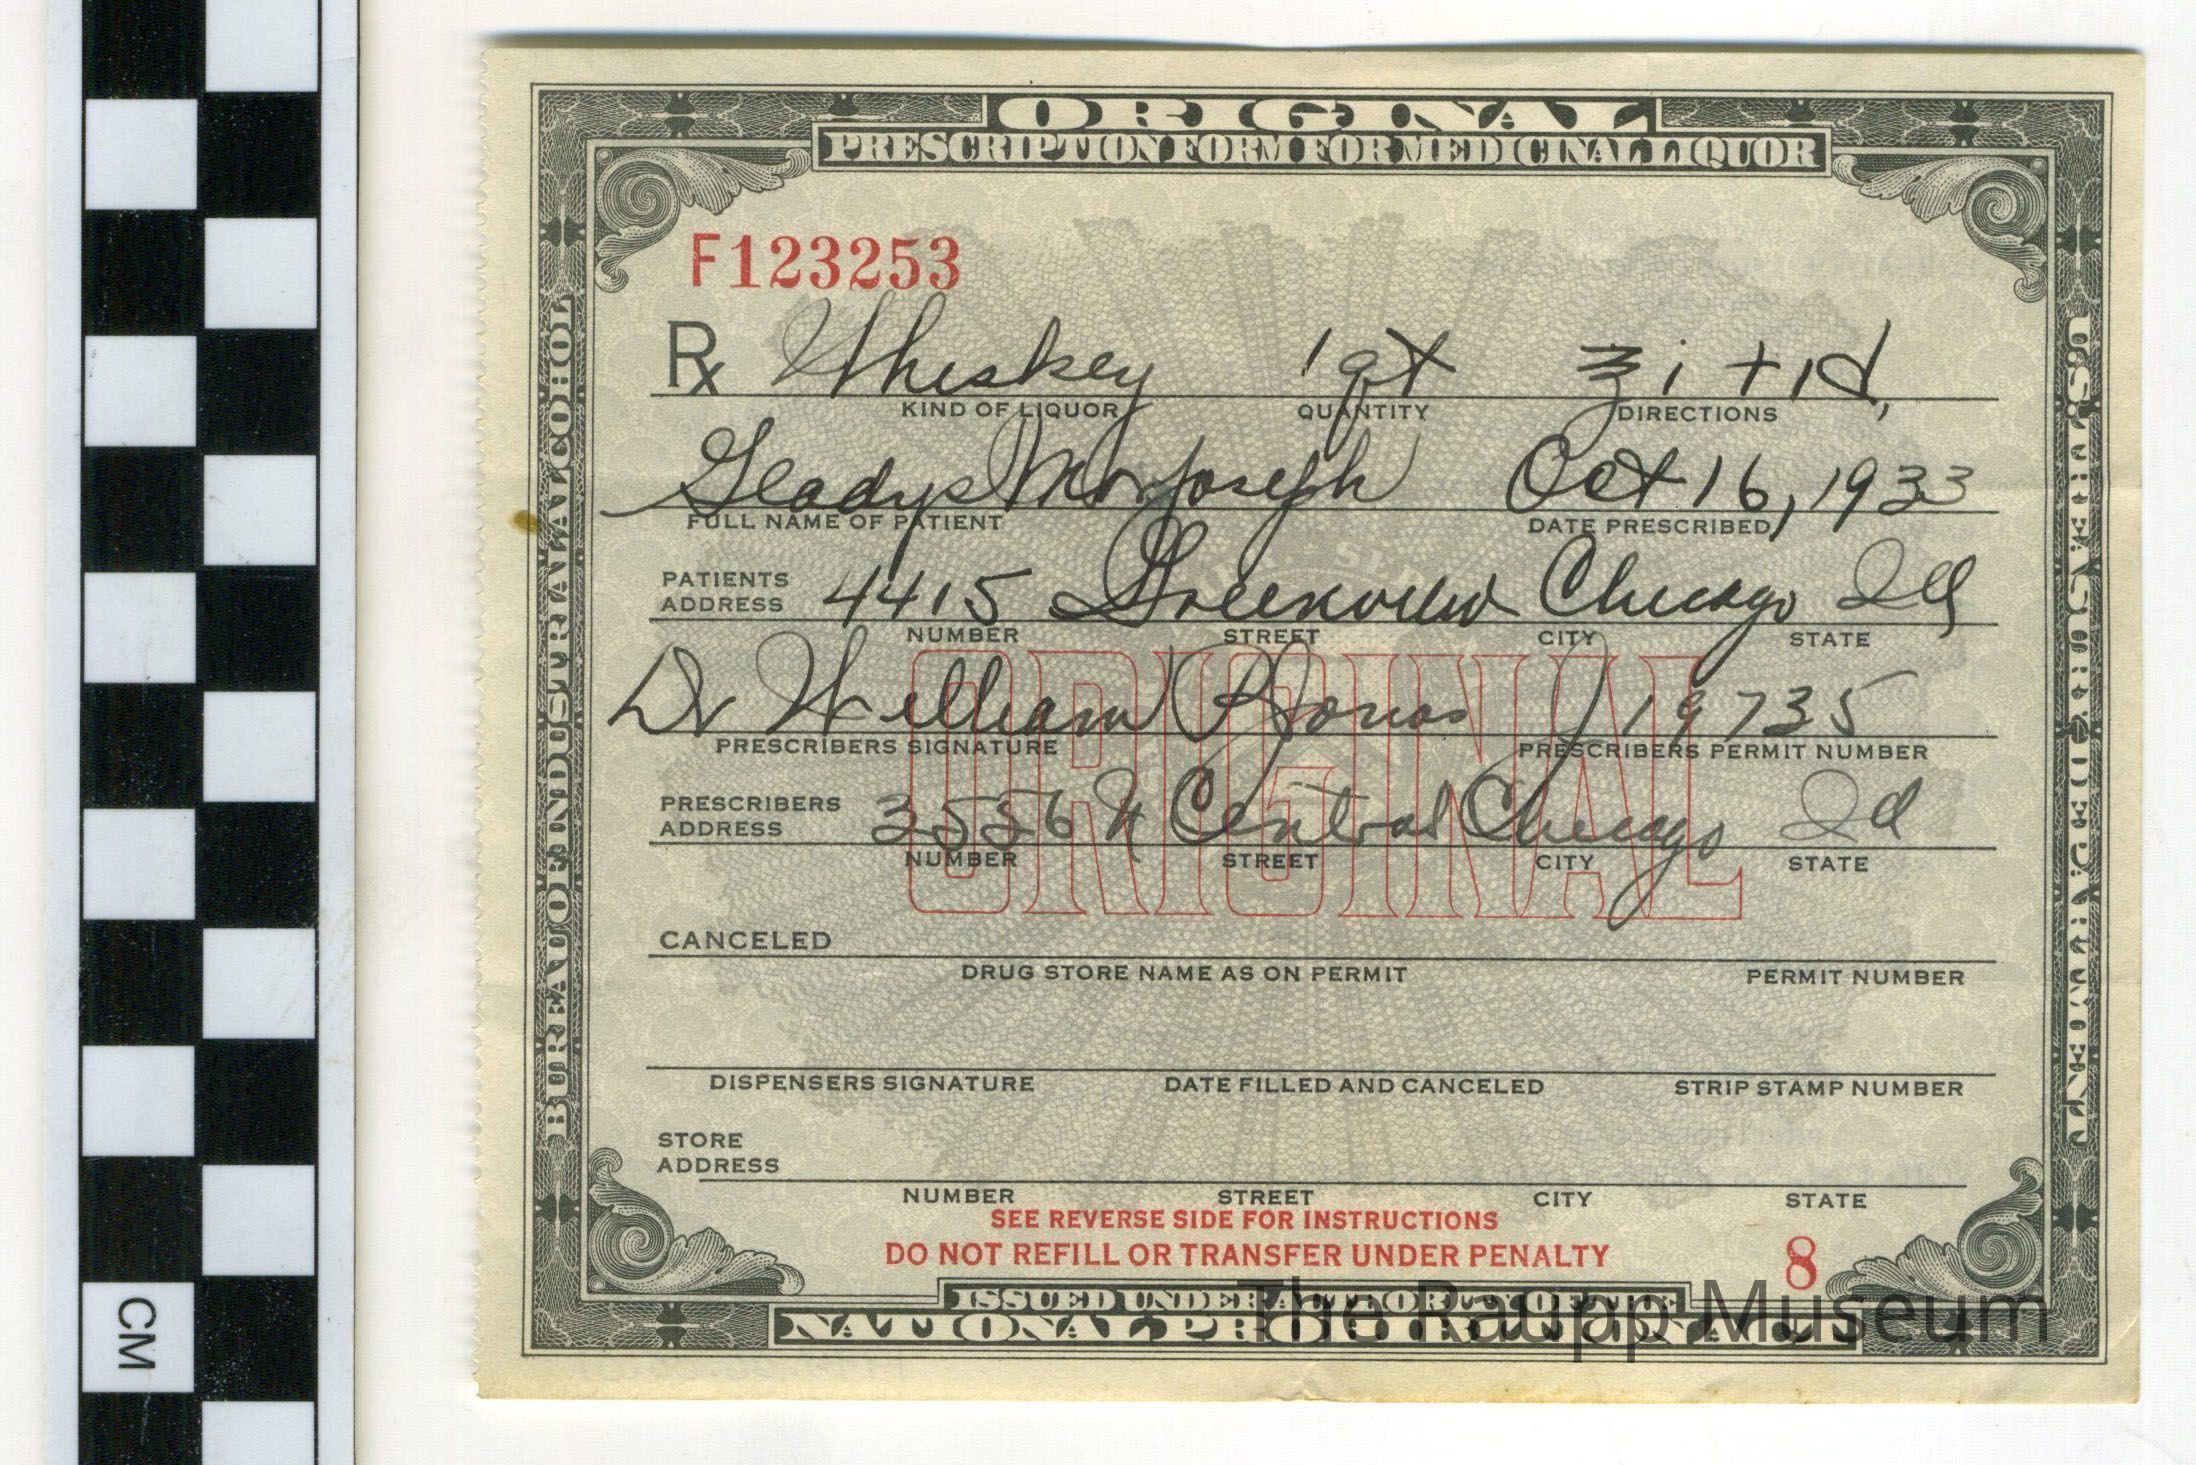 ORIGINAL
PRESCRIPTION FORM FOR MEDICINAL LIQUOR
BUREAU OF INDUSTRIAL ALCOHOL
U.S. TREASURY DEPARTMENT
F123253
Rx Whiskey 1 qt ʒ i t i d,
KIND OF LIQUOR QUANTITY DIRECTIONS
Gladys Oct 16, 1933
FULL NAME OF PATIENT DATE PRESCRIBED
PATIENTS
ADDRESS 4415 Greenview Chicago Ill
NUMBER STREET CITY STATE
Dr William 19735
PRESCRIBERS SIGNATURE PRESCRIBERS PERMIT NUMBER
ORIGINAL
PRESCRIBERS
ADDRESS 3556 N Central Chicago Ill
NUMBER STREET CITY STATE
CANCELED
DRUG STORE NAME AS ON PERMIT PERMIT NUMBER
DISPENSERS SIGNATURE DATE FILLED AND CANCELED STRIP STAMP NUMBER
STORE
ADDRESS
NUMBER STREET CITY STATE
SEE REVERSE SIDE FOR INSTRUCTIONS
DO NOT REFILL OR TRANSFER UNDER PENALTY 8
ISSUED UNDER AUTHORITY OF THE
NATIONAL PROHIBITION ACT
The Raupp Museum
CM